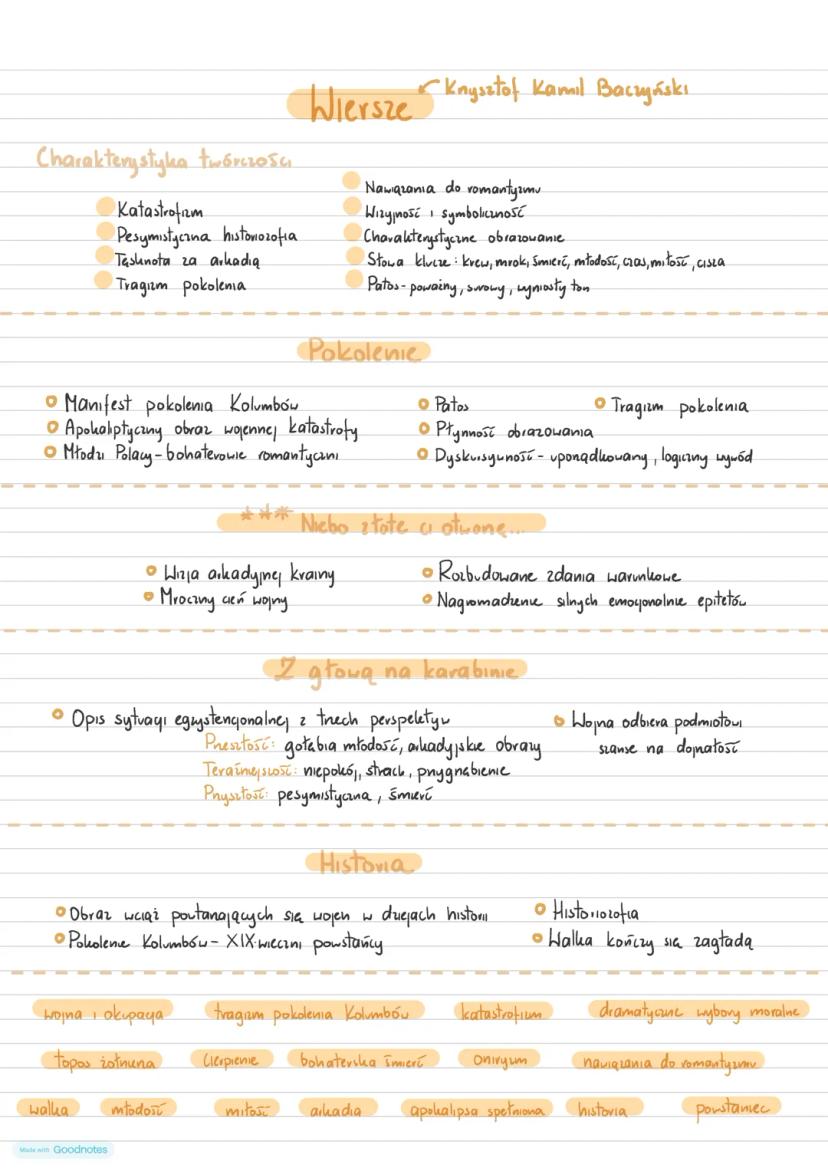 Wiersze
Krzysztof Kamil Baczyński
Charakterystyka twórczości
Katastrofizm
Pesymistyczna historiozofia
Tęsknota za arkadią
Tragizm pokolenia
Nawiązania do romantyzmu
Wizyjność i symboliczność
Charakterystyczne obrazowanie
Słowa klucze: krew, mrok, śmierć, młodość, czas, miłość, cisza
Patos - poważny, surowy, wyniosły ton
Pokolenie
Manifest pokolenia Kolumbów
Apokaliptyczny obraz wojennej katastrofy
Młodzi Polacy - bohaterowie romantyczni
Patos
Płynność obrazowania
Dyskursywność - uporządkowany, logiczny wywód
Tragizm pokolenia
*** Niebo złote ci otworzę...
Wizja arkadyjnej krainy
Mroczny cień wojny
Rozbudowane zdania warunkowe
Nagromadzenie silnych emocjonalnie epitetów
Z głową na karabinie
Opis sytuacji egzystencjonalnej z trzech perspektyw
Przeszłość: gołębia młodość, arkadyjskie obrazy
Teraźniejszość: niepokój, strach, przygnębienie
Przyszłość: pesymistyczna, śmierć
Wojna odbiera podmiotowi
szanse na dojrzałość
Historia
Obraz wciąż powtarzających się wojen w dziejach historii
Pokolenie Kolumbów - XIX-wieczni powstańcy
Historiozofia
Walka kończy się zagładą
wojna i okupacja tragizm pokolenia Kolumbów katastrofizm dramatyczne wybory moralne
topos żołnierza cierpienie bohaterska śmierć oniryzm nawiązania do romantyzmu
walka młodość miłość arkadia apokalipsa spełniona historia powstaniec
Made with Goodnotes